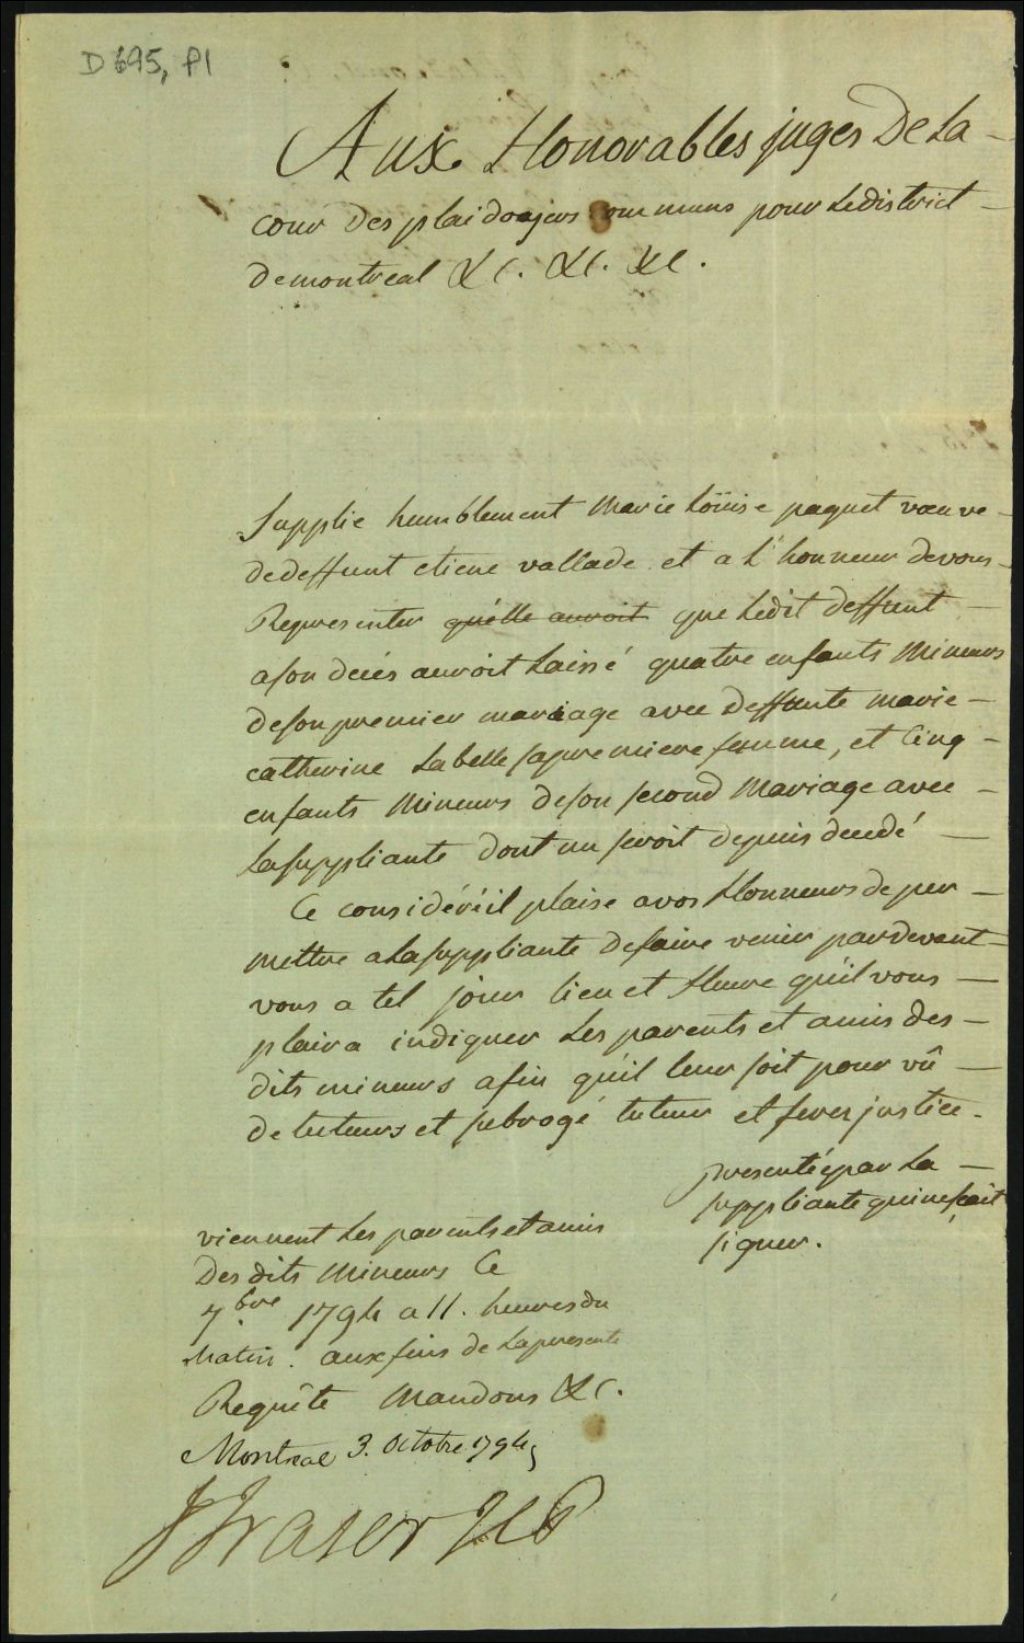 D 695, P1
Aux Honorables juges De La
cour Des plaidoajers communs pour Ledistrict
demontreal &c. &c. &c.
Supplie humblement Marie Loüise paquet vœuve
dedeffunt etiene vallade et a L'honneur devous
Representer qu'elle auroit que Ledit deffunt
ason decés auroit Laissé quatre enfants Mineurs
deson premier mariage avec Deffunte marie
catherine Labelle sapremiere femme, et Cinq
enfants Mineurs deson second Mariage avec
Lasuppliante dont un seroit depuis decedé
Ce considéré il plaise avos Honneurs de per
mettre aLasuppliante defaire venir pardevant
vous a tel jour lieu et Heure qu'il vous
plaira indiquer Les parents et amis des
dits mineurs afin qu'il leur soit pour vû
de tuteurs et subrogé tuteur et ferez justice.
presentée par La
suppliante quinesçait
signer.
viennent Les parents et amis
Des dits Mineurs Ce
7.bre 1794 a 11. heures du
Matin. aux fins de Lapresente
Requête Mandons &c.
Montreal 3. Octobre 1794
JFraser JCP